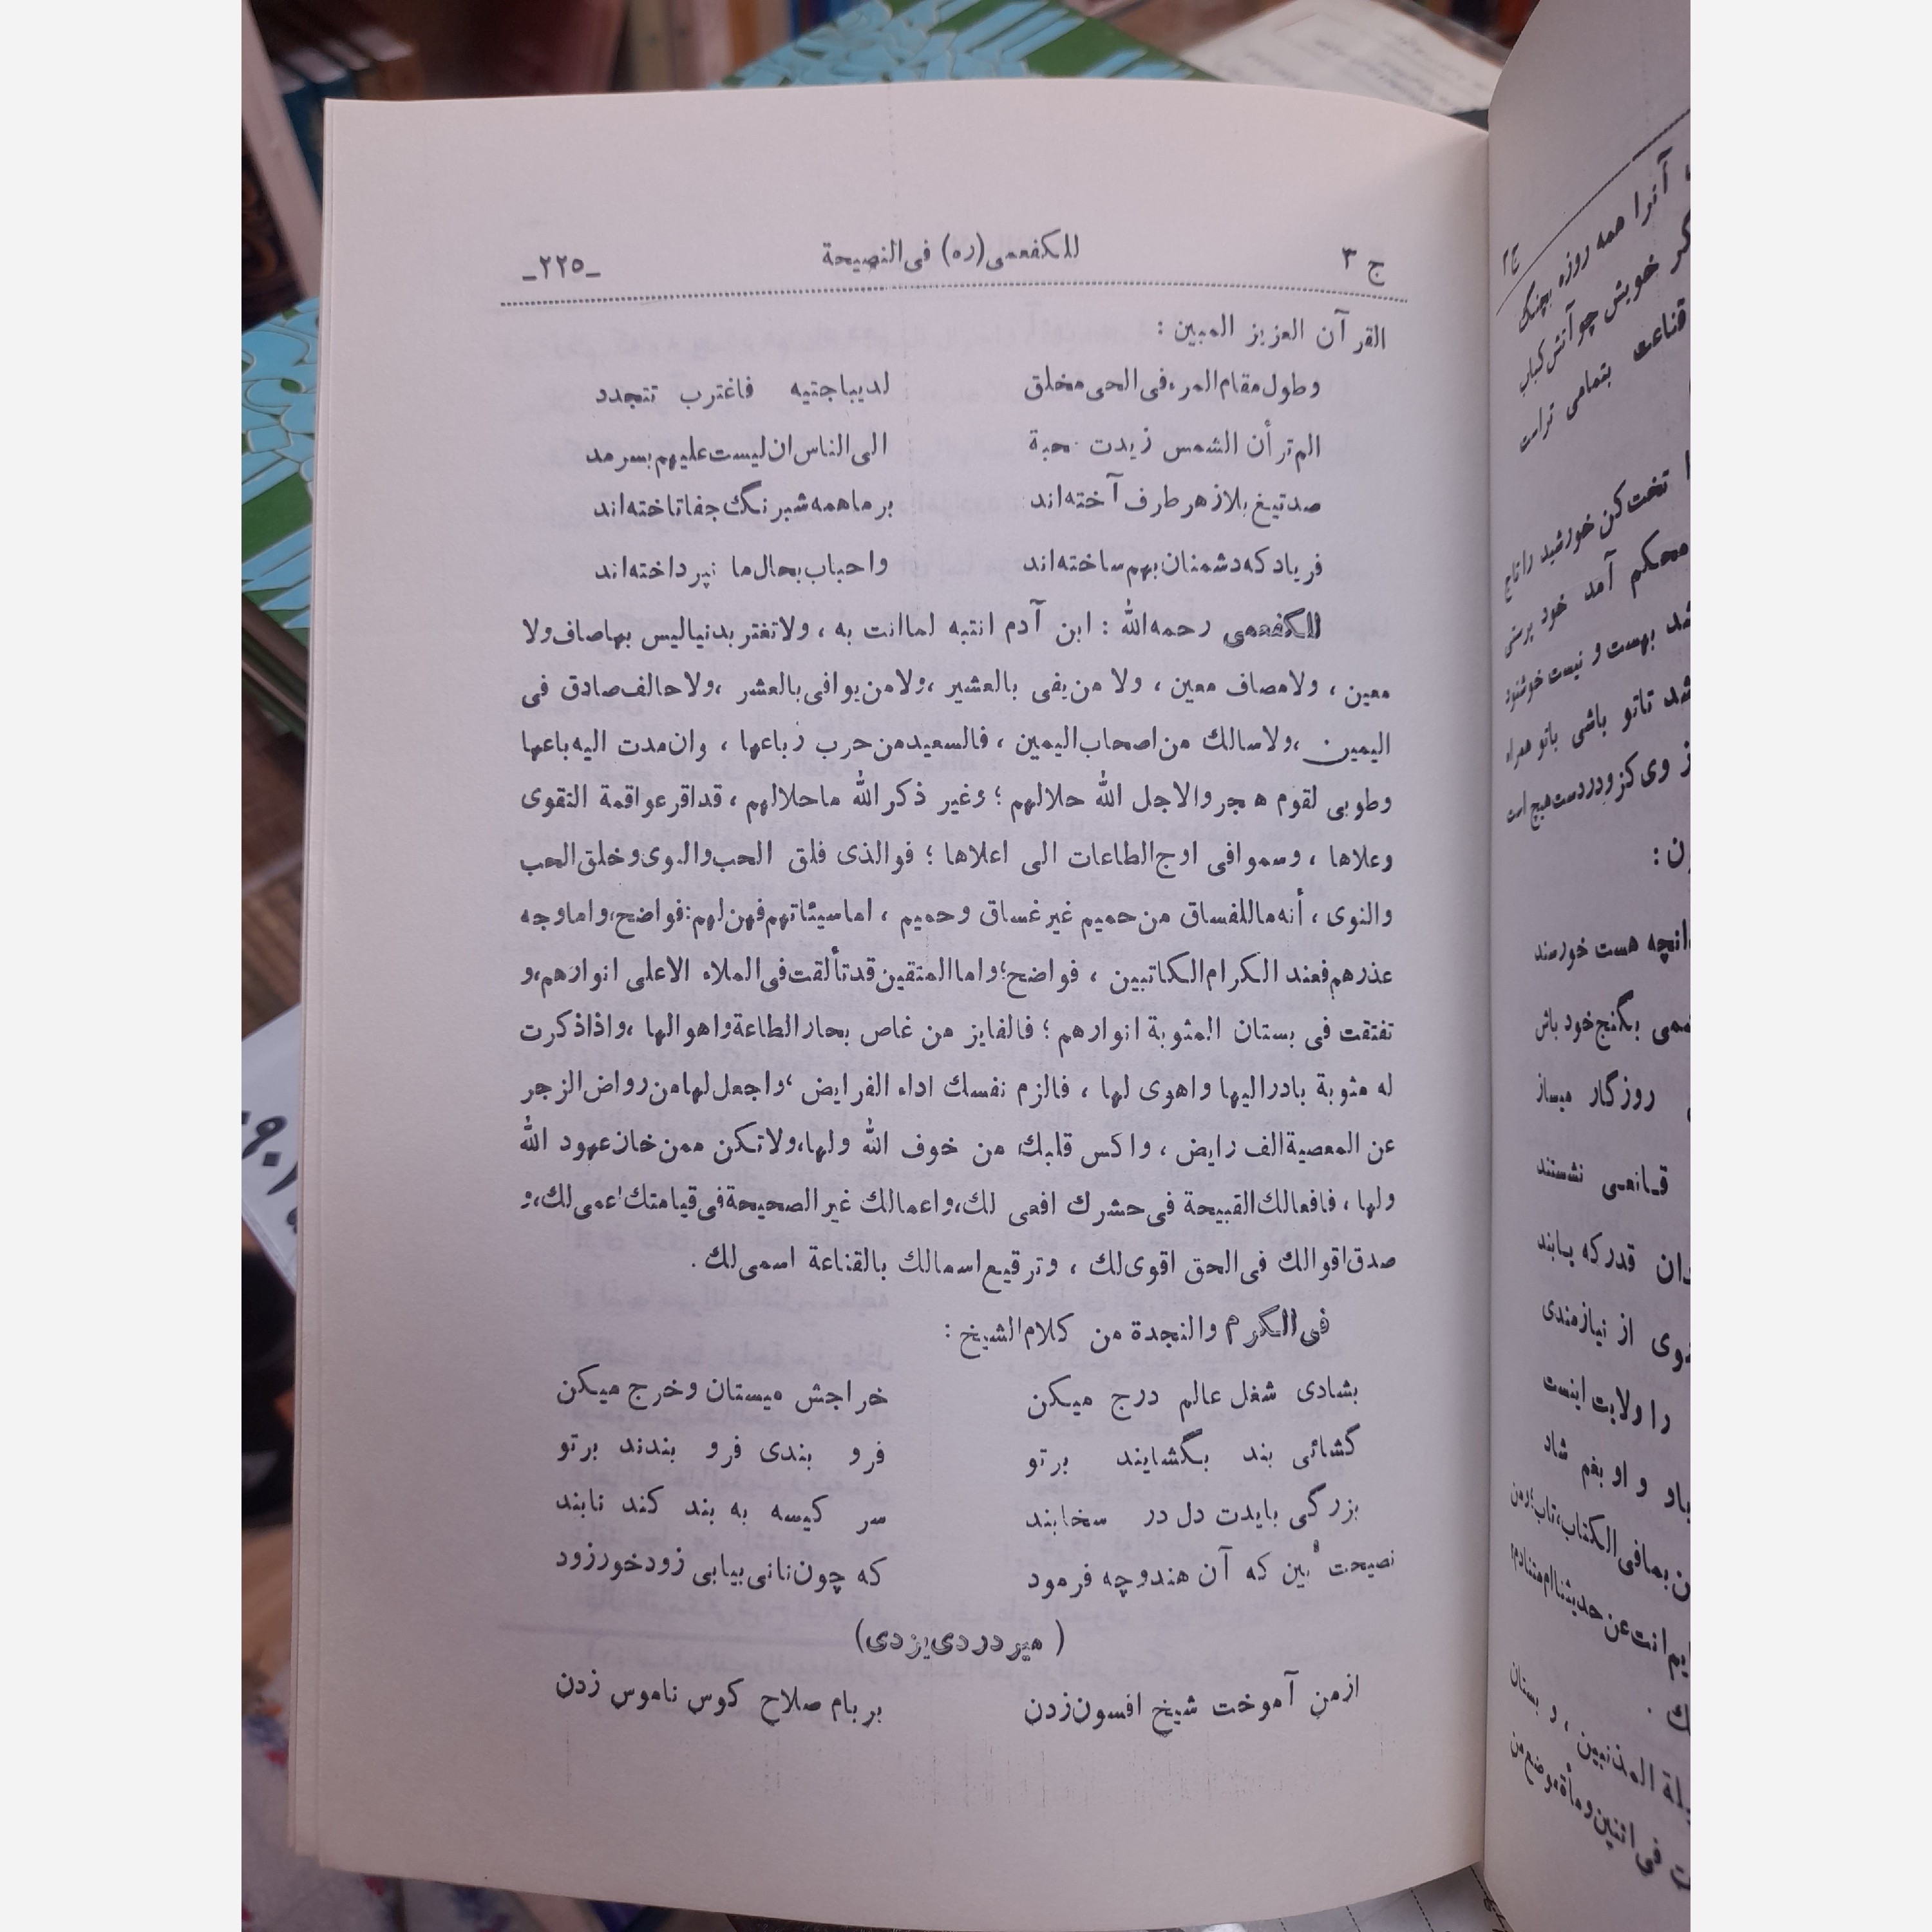 ج ۳ للکفعمی (ره) فی النصیحة _۲۲۵_
القرآن العزیز المبین :
وطول مقام المرء فی الحی مخلق لدیباجتیه فاغترب تتجدد
الم تر أن الشمس زیدت محبة الی الناس ان لیست علیهم بسرمد
صد تیغ بلا از هر طرف آخته‌اند بر ما همه شبرنگ جفا تاخته‌اند
فریاد که دشمنان بهم ساخته‌اند واحباب بحال ما نپرداخته‌اند
للکفعمی رحمه‌الله : ابن آدم انتبه لما انت به ، ولا تغتر بدنیا لیس بها صاف ولا
معین ، ولا مصاف معین ، ولا من یفی بالعشیر ، ولا من یوافی بالعشر ، ولا حالف صادق فی
الیمین ، ولا سالك من اصحاب الیمین ، فالسعید من حرب زباعها ، وان مدت الیه باعها
وطوبی لقوم هجر والاجل الله حلالهم ؛ وغیر ذکر الله ما حلالهم ، قد اقرعوا قمة التقوی
وعلاها ، وسموا فی اوج الطاعات الی اعلاها ؛ فوالذی فلق الحب والنوی وخلق الحب
والنوی ، أنه ما للفساق من حمیم غیر غساق وحمیم ، اما سیئاتهم فهن لهم : فواضح ، واما وجه
عذرهم فعند الکرام الکاتبین ، فواضح ؛ واما المتقین قد تألقت فی الملاء الاعلی انوارهم ، و
تفتقت فی بستان المثوبة انوارهم ؛ فالفایز من غاص بحار الطاعة واهوالها ، واذا ذکرت
له مثوبة بادر الیها واهوی لها ، فالزم نفسك اداء الفرایض ، واجعل لها من رواض الزجر
عن المعصیة الف رایض ، واکس قلبك من خوف الله ولها ، ولا تکن ممن خان عهود الله
ولها ، فافعالك القبیحة فی حشرك افعی لك ، واعمالك غیر الصحیحة فی قیامتك اعمی لك ، و
صدق اقوالك فی الحق اقوی لك ، وترقیع اسمالك بالقناعة اسمی لك .
فی الکرم والنجدة من کلام الشیخ :
بشادی شغل عالم درج میکن خراجش میستان وخرج میکن
گشائی بند بگشایند برتو فرو بندی فرو بندند برتو
بزرگی بایدت دل در سخا بند سر کیسه به بند کند نا بند
نصیحت بین که آن هندو چه فرمود که چون نانی بیابی زود خور زود
( میر دردی یزدی)
از من آموخت شیخ افسون زدن بر بام صلاح کوس ناموس زدن